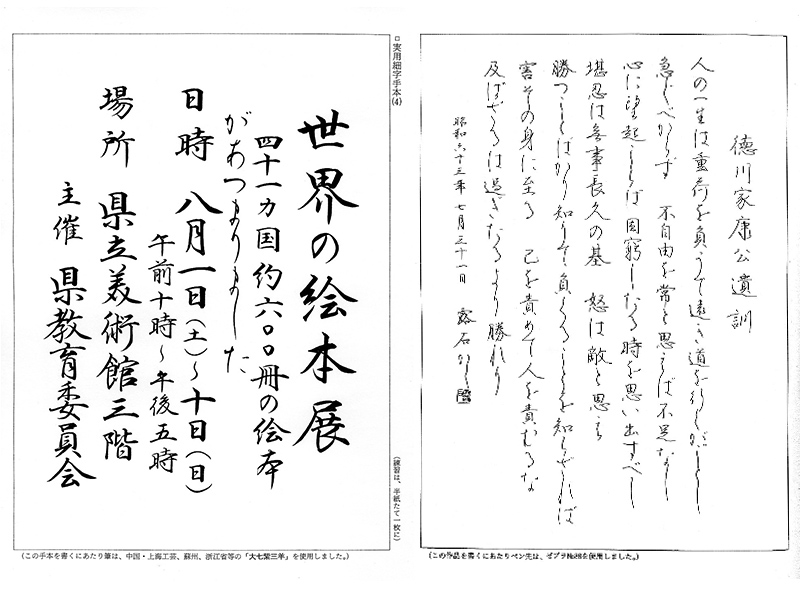 徳川家康公遺訓
人の一生は重荷を負うて遠き道を行くがごとし
急ぐべからず　不自由を常と思えば不足なし
心に望起こらば困窮したる時を思い出すべし
堪忍は無事長久の基　怒は敵と思え
勝つことばかり知りて負くることを知らざれば
害その身に至る　己を責めて人を責むるな
及ばざるは過ぎたるより勝れり
昭和六十三年七月三十一日　露石かく
(この作品を書くにあたりペン先は、ゼブラ を使用しました。)
□実用細字手本(4)
(練習は、半紙たて一枚に)
世界の絵本展
四十一カ国約六〇〇冊の絵本
があつまりました
日時　八月一日(土)～十日(日)
午前十時～午後五時
場所　県立美術館三階
主催　県教育委員会
(この手本を書くにあたり筆は、中国・上海工芸、蘇州、浙江省等の「大七紫三羊」を使用しました。)